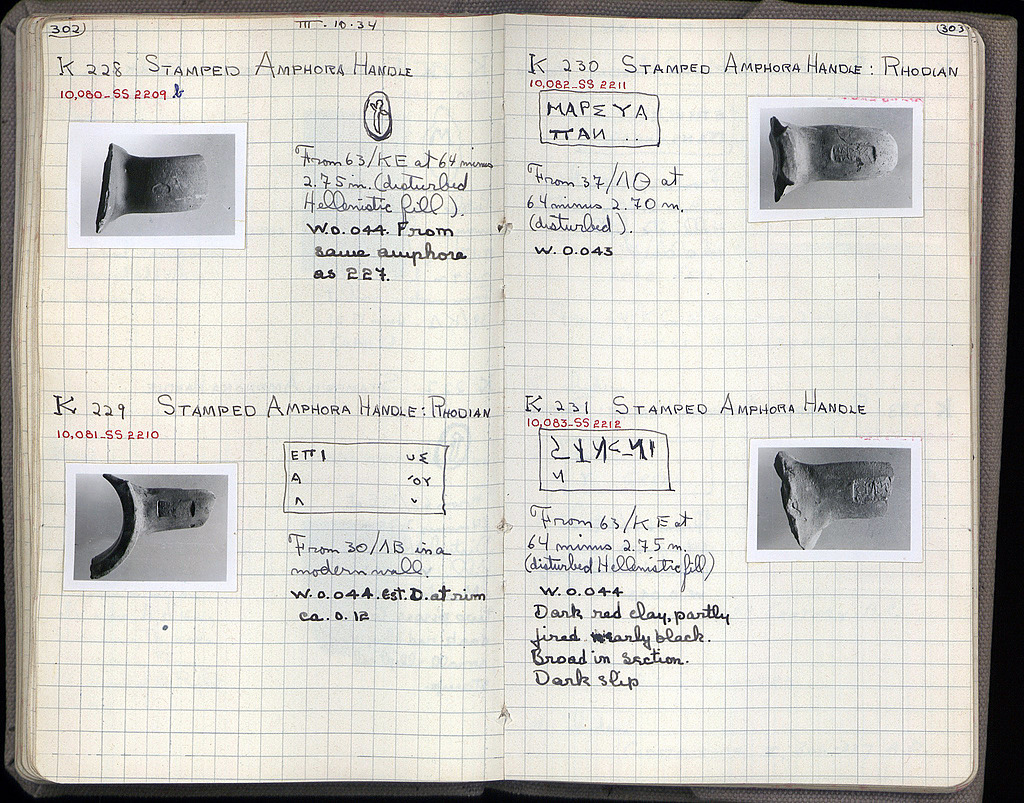 302
III · 10 · 34
K 228 STAMPED AMPHORA HANDLE
10,080-SS 2209 b
From 63/KE at 64 minus
2.75 m. (disturbed
Hellenistic fill).
W. 0.044. From
same amphora
as 227.
K 229 STAMPED AMPHORA HANDLE: RHODIAN
10,081-SS 2210
ΕΠΙ υς
Α ΌΥ
Λ υ
From 30/ΛΒ in a
modern wall.
W. 0.044. est. D. at rim
ca. 0.12
303
K 230 STAMPED AMPHORA HANDLE: RHODIAN
10,082-SS 2211
ΜΑΡΣΥΑ
ΠΑΝ ..
From 37/ΛΘ at
64 minus 2.70 m.
(disturbed).
W. 0.043
K 231 STAMPED AMPHORA HANDLE
10,083-SS 2212
From 63/KE at
64 minus 2.75 m.
(disturbed Hellenistic fill)
W. 0.044
Dark red clay, partly
fired nearly black.
Broad in section.
Dark slip